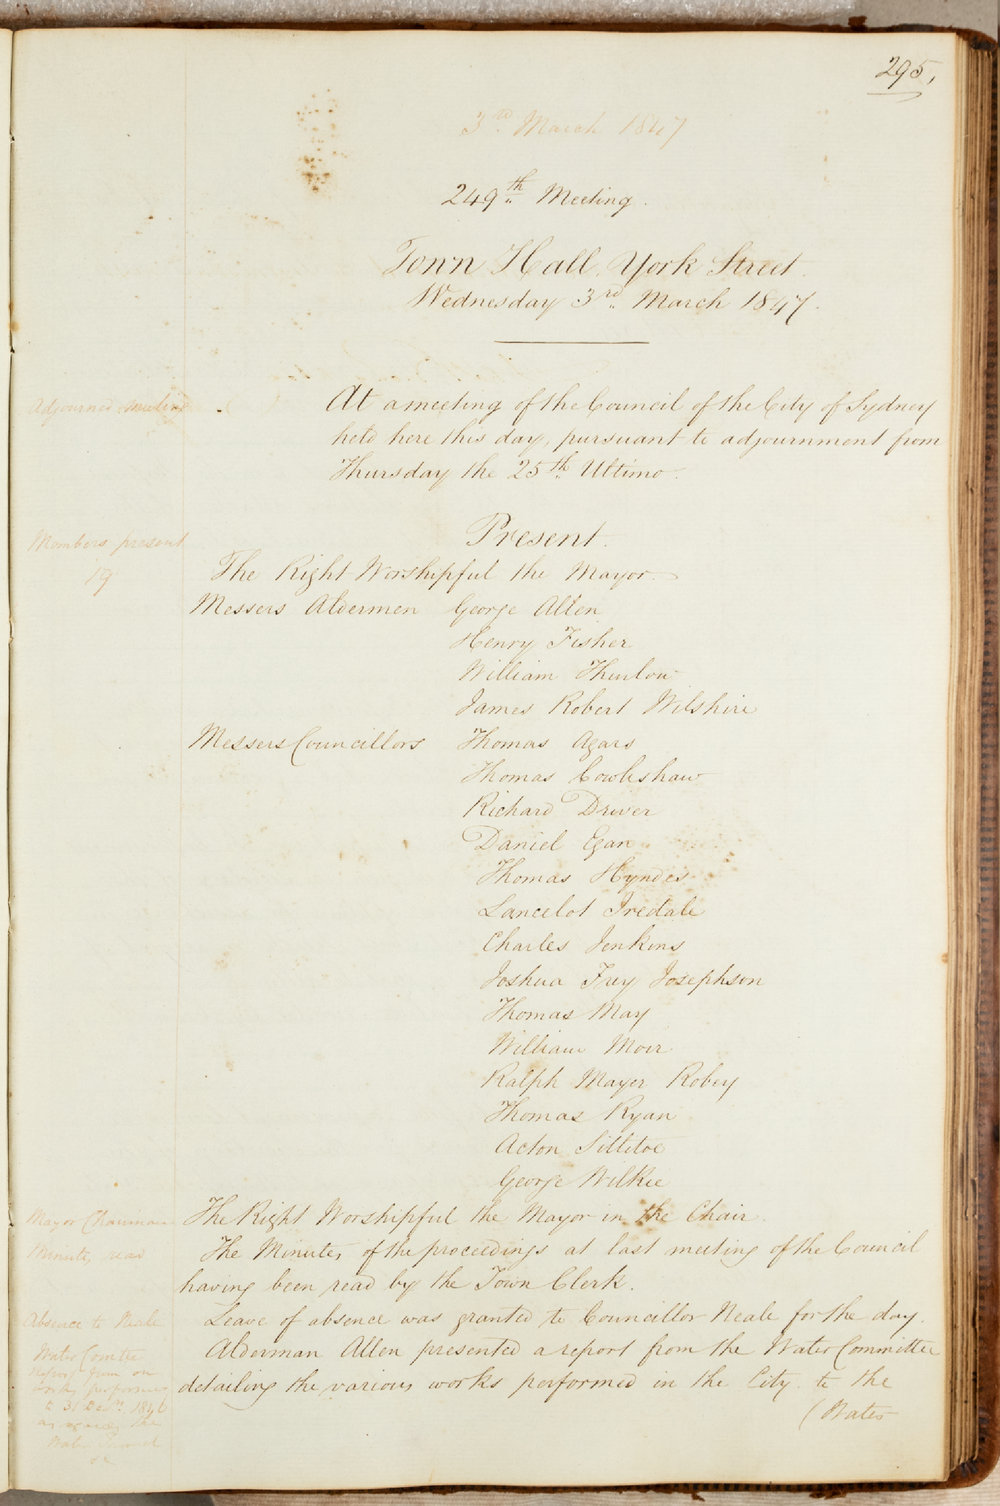 295,
3rd March 1847
249th Meeting.
Town Hall, York Street.
Wednesday 3rd March 1847.
Adjourned meeting
At a meeting of the Council of the City of Sydney
held here this day, pursuant to adjournment from
Thursday the 25th Ultimo.
Members present
19
Present.
The Right Worshipful the Mayor.
Messers Aldermen George Allen
Henry Fisher
William Thurlow
James Robert Wilshire
Messers Councillors Thomas Agars
Thomas Cowlishaw
Richard Driver
Daniel Egan
Thomas Hyndes
Lancelot Iredale
Charles Jenkins
Joshua Frey Josephson
Thomas May
William Moir
Ralph Mayer Robey
Thomas Ryan
Acton Sillitoe
George Wilkie
Mayor Chairman
The Right Worshipful the Mayor in the Chair.
Minutes read
The Minutes of the proceedings at last meeting of the Council
having been read by the Town Clerk.
Absence to Neale
Leave of absence was granted to Councillor Neale for the day.
Water Comtee
report from on
works performed
to 31 Decr. 1846
the
Water
Alderman Allen presented a report from the Water Committee
detailing the various works performed in the City to the
(Water